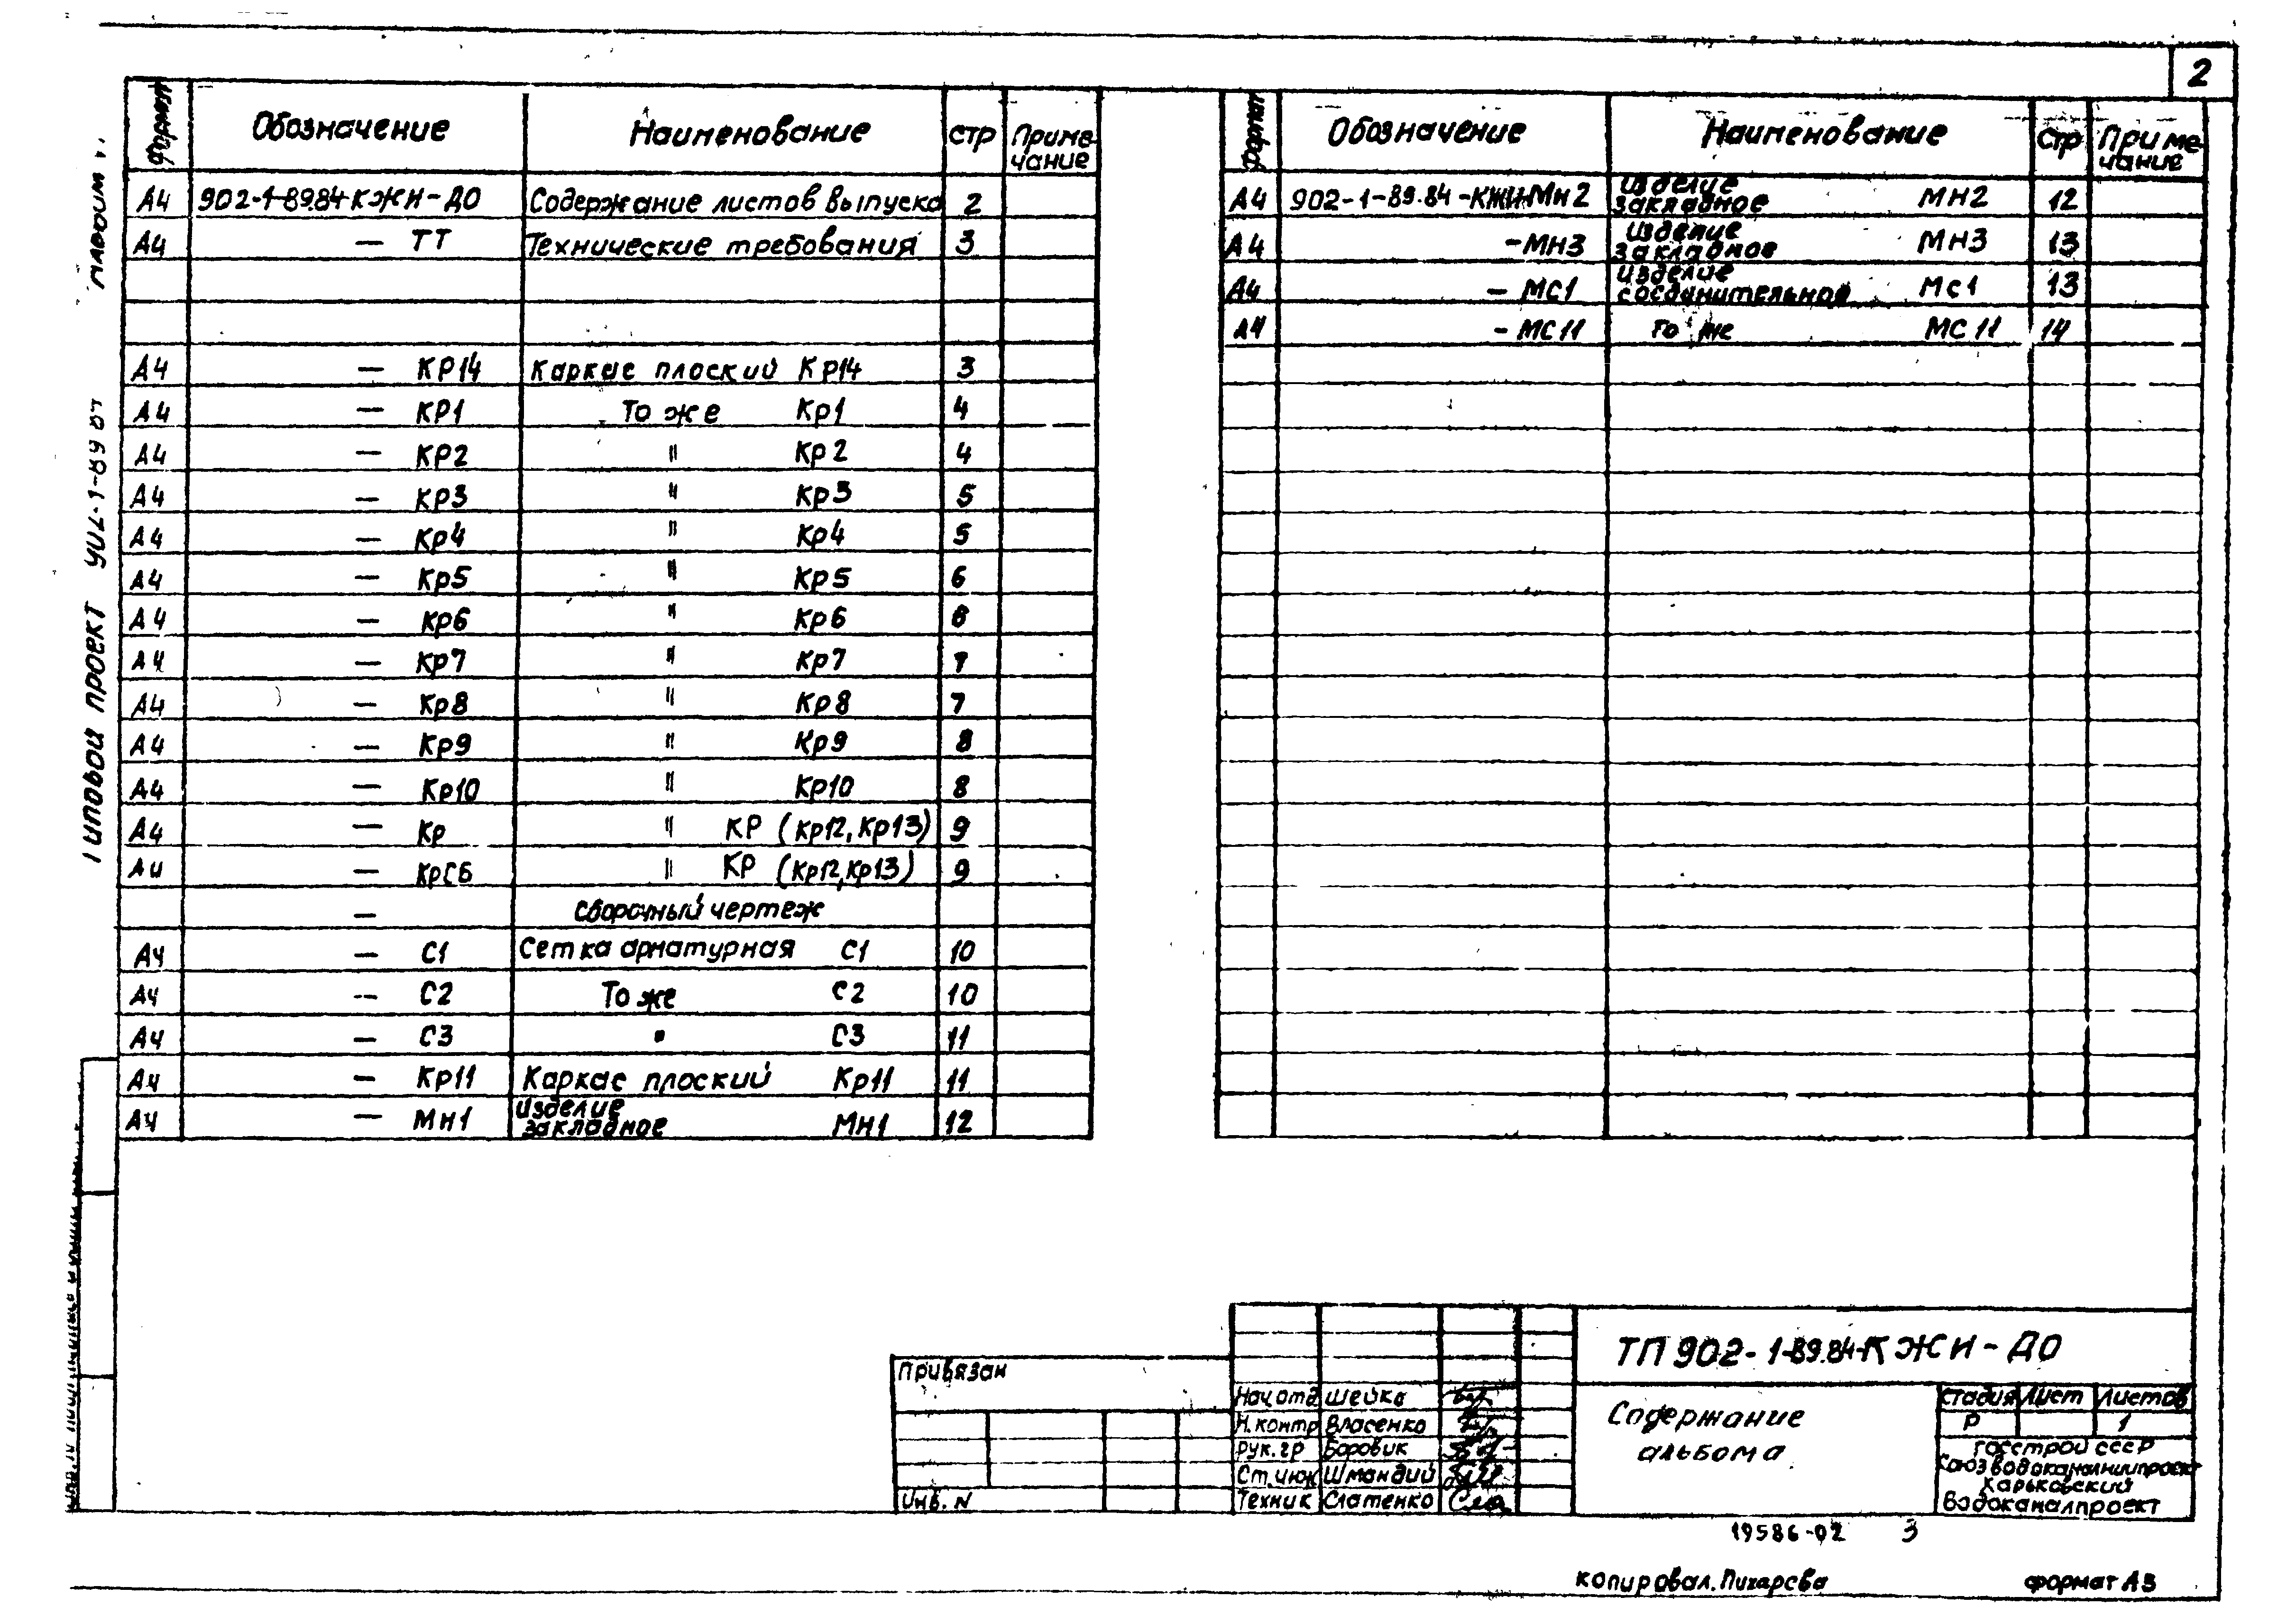 2
Формат Обозначение Наименование стр Приме-чание
А4 902-1-89.84-КЖИ-ДО Содержание листов выпуска 2
А4 — ТТ Технические требования 3
А4 — КР14 Каркас плоский Кр14 3
А4 — КР1 То же Кр1 4
А4 — КР2 " Кр2 4
А4 — КР3 " Кр3 5
А4 — Кр4 " Кр4 5
А4 — Кр5 " Кр5 6
А4 — Кр6 " Кр6 6
А4 — Кр7 " Кр7 7
А4 — Кр8 " Кр8 7
А4 — Кр9 " Кр9 8
А4 — Кр10 " Кр10 8
А4 — Кр " КР (Кр12, Кр13) 9
А4 — КрСб " КР (Кр12, Кр13) 9
— Сборочный чертеж
А4 — С1 Сетка арматурная С1 10
А4 -- С2 То же С2 10
А4 — С3 " С3 11
А4 — Кр11 Каркас плоский Кр11 11
А4 — Мн1 Изделие закладное Мн1 12
Формат Обозначение Наименование Стр Приме-чание
А4 902-1-89.84-КЖИ-Мн2 Изделие закладное МН2 12
А4 -МН3 Изделие закладное МН3 13
А4 - МС1 Изделие соединительное Мс1 13
А4 - МС11 то же МС11 14
Типовой проект
Привязан
Инв. N
Нач.отд Шейко
Н.контр Власенко
Рук.гр Боровик
Ст.инж Шмандий
Техник Слатенко
ТП 902-1-89.84-КЖИ-ДО
Содержание
альбома
Стадия Лист Листов
Р 1
Госстрой СССР
Союзводоканалниипроект
Харьковский
Водоканалпроект
19586-02 3
копировал. Пихарева формат А3